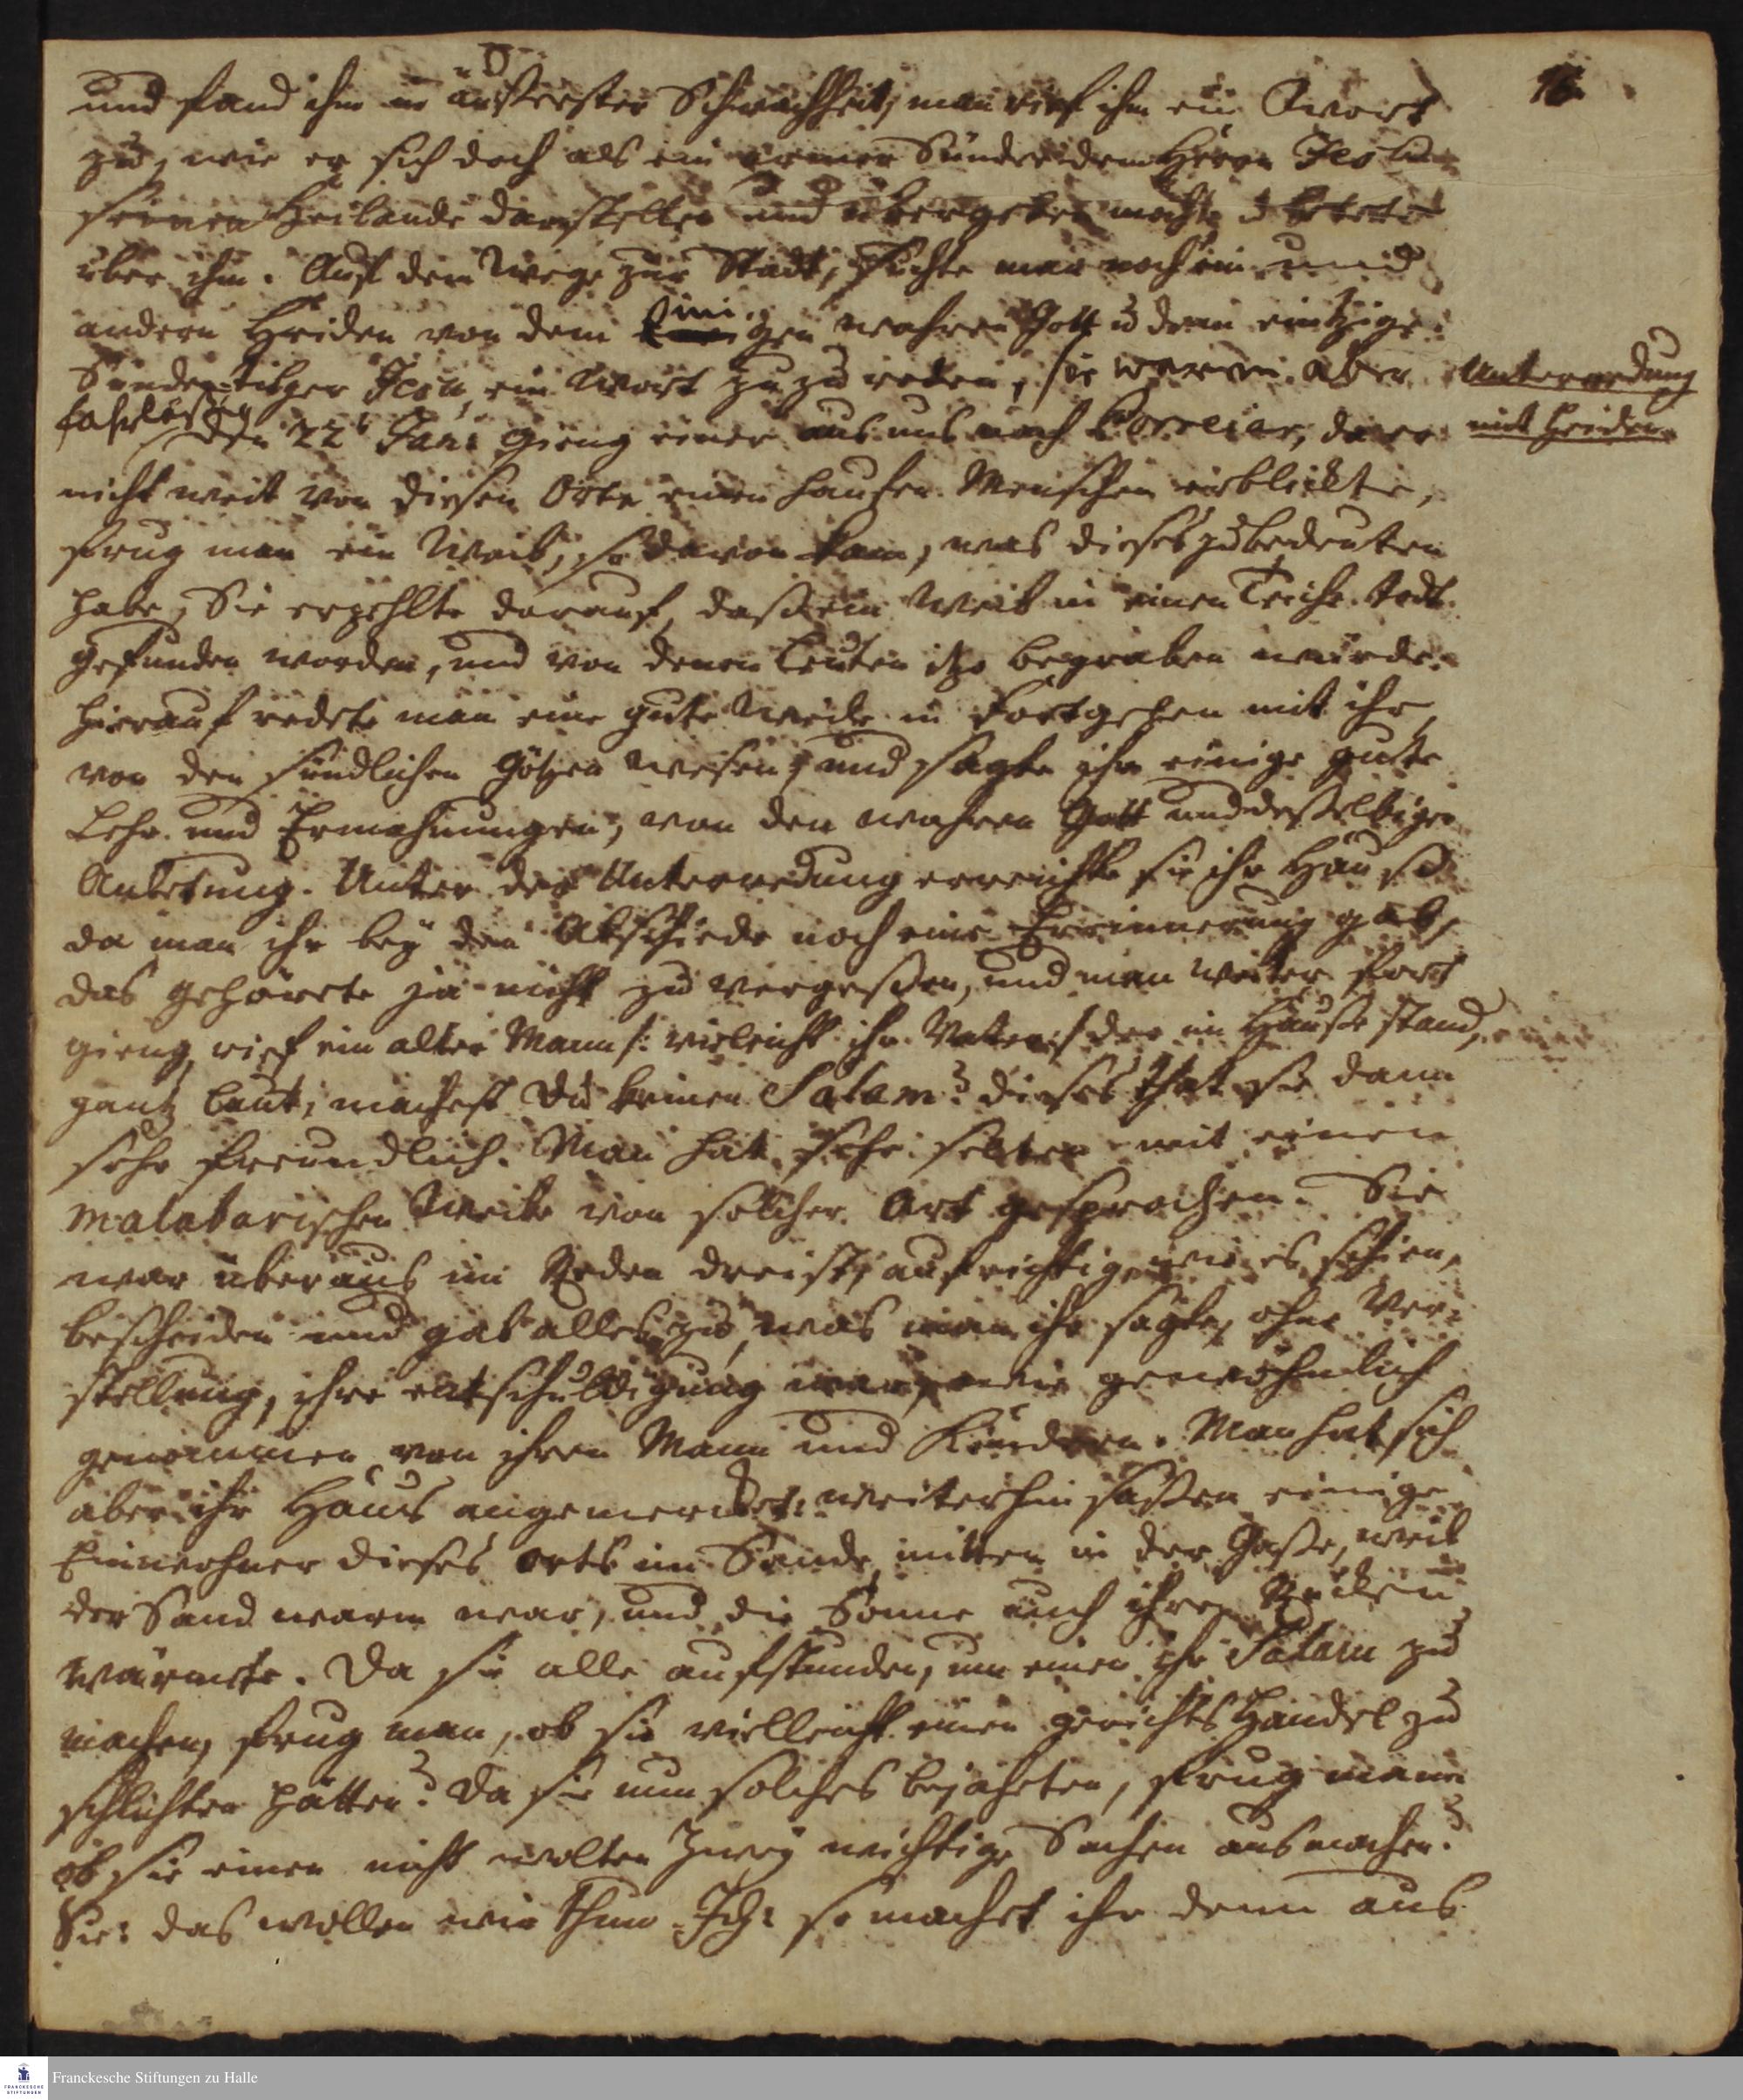 16.
und fand ihn in äußerster Schwachheit, man rief ihm ein Wort
zu, wie er sich doch als ein armer Sünder dem Herrn Jesu
seinen Heilande darstellen und übergeben möchte u. betete
über ihn. Auf dem Wege zur Stadt, suchte man noch ein und
andern Heiden von dem einigen wahren Gott u. dem eintzigen
Sünden-Tilger Jesu, ein Wort zu zu reden, sie waren aber
Unterredung
mit Heiden.
den 22t Jan: gieng einer aus uns nach Porreiar, da er
nicht weit von diesen Orte einen hauffen Menschen erblickte,
frug man ein Weib, so davon kam, was dieses zu bedeuten
habe, Sie erzehlte darauf, daß ein Weib in einen Teiche todt
gefunden worden, und von denen Leuten itzo begraben würde.
hierauf redete man eine gute Weile in fortgehen mit ihr,
von den sündlichen Götzen wesen, und sagte ihr einige gute
Lehr. und Ermahnungen, von den wahren Gott und desselbigen
Anbetung. Unter der Unterredung erreichte sie ihr Hauß
da man ihr bey den Abschiede noch eine Erinnerung gab,
das gehörete ja nicht zu vergeßen, und man weiter fort
gieng, rief ein alter Mann /: vieleicht ihr Vater :/ der im Hauße stand,
gantz laut, machest du keinen Salam? dieses that sie dann
sehr freundlich. Man hat sehr selten mit einen
malabarischen Weibe von solcher Art gesprochen. Sie
war überaus im Reden dreist, aufrichtig, wie es schien,
bescheiden und gab alles zu, was man ihr sagte, ohne Ver-
stellung, ihre entschuldigung war, wie gewöhnlich
genommen von ihren Mann und Kindern. Man hat sich
aber ihr Haus angemercket. weiterhin saßen einige
Einwohner dieses Orts im Sande, mitten in der Gaße, weil
der Sand warm war, und die Sonne auch ihren Rücken
wärmete. Da sie alle aufstunden, um einen ihr Salam zu
machen, frug man, ob sie vielleicht einen gerichts Handel zu
schlichten hätten? Da sie nun solches bejaheten, frug man
ob sie einen nicht wolten zwey wichtige Sachen ausmachen?
Sie: das wollen wir thun. Ich: so machet ihr denn aus
Franckesche Stiftungen zu Halle
FRANCKESCHE
STIFTUNGEN